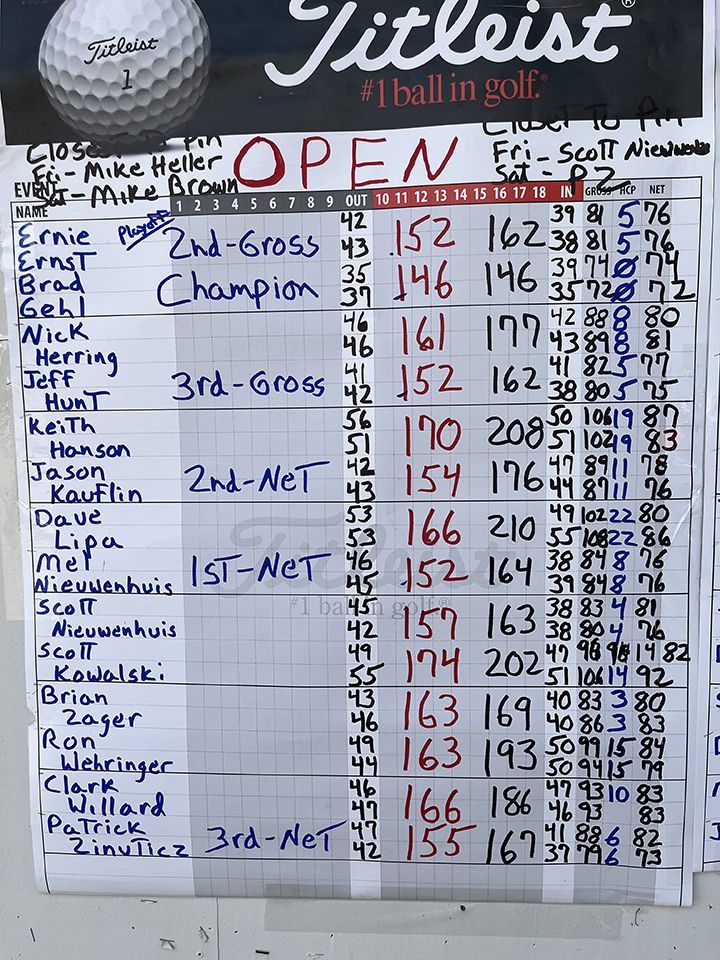 Titleist
1
Titleist®
#1 ball in golf.®
Closest To Pin
Fri - Mike Heller
Sat - Mike Brown
OPEN
Closet To Pin
Fri - Scott Nieuwenhuis
Sat - P7
EVENT
NAME 1 2 3 4 5 6 7 8 9 OUT 10 11 12 13 14 15 16 17 18 IN GROSS HCP NET
Ernie Playoff 42 39 81 5 76
Ernst 2nd-Gross 43 152 162 38 81 5 76
Brad 35 39 74 0 74
Gehl Champion 37 146 146 35 72 0 72
Nick 46 42 88 8 80
Herring 46 161 177 43 89 8 81
Jeff 41 41 82 5 77
Hunt 3rd-Gross 42 152 162 38 80 5 75
Keith 56 50 106 19 87
Hanson 51 170 208 51 102 19 83
Jason 42 47 89 11 78
Kauflin 2nd-Net 43 154 176 44 87 11 76
Dave 53 49 102 22 80
Lipa 53 166 210 55 108 22 86
Mel 46 38 84 8 76
Nieuwenhuis 1st-Net 45 152 164 39 84 8 76
Titleist
#1 ball in golf®
Scott 45 38 83 4 81
Nieuwenhuis 42 157 163 38 80 4 76
Scott 49 47 96 14 82
Kowalski 55 174 202 51 106 14 92
Brian 43 40 83 3 80
Zager 46 163 169 40 86 3 83
Ron 49 50 99 15 84
Wehringer 44 163 193 50 94 15 79
Clark 46 47 93 10 83
Willard 47 166 186 46 93 83
Patrick 47 41 88 6 82
Zinuticz 3rd-Net 42 155 167 37 79 6 73